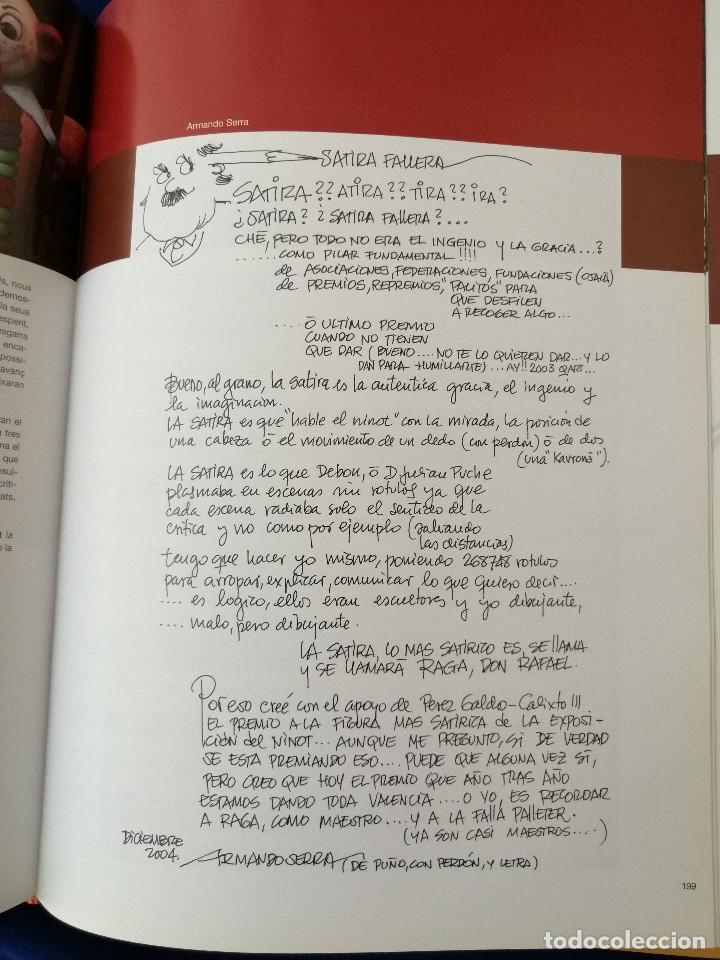 Armando Serra
SATIRA FALLERA
SATIRA?? ATIRA?? TIRA?? IRA?
¿SATIRA? ¿SATIRA FALLERA?....
CHĒ, PERO TODO NO ERA EL INGENIO Y LA GRACIA...?
......COMO PILAR FUNDAMENTAL!!!!
de ASOCIACIONES, FEDERACIONES, FUNDACIONES (OJALÁ)
de PREMIOS, REPREMIOS, "PALITOS" PARA
QUE DESFILEN
A RECOGER ALGO...
....Ō ULTIMO PREMIO
CUANDO NO TIENEN
QUE DAR (BUENO....NO TE LO QUIEREN DAR...Y LO
DAN PARA HUMILLARTE)...AY!! 2003
BUENO, al grano, la satira es la autentica gracia, el ingenio y
la imaginacion.
LA SATIRA es que "hable el ninot" con la mirada, la posición de
una cabeza ō el movimiento de un dedo (con perdón) ō de dos
(una "Kavronā").
LA SATIRA es lo que Debon, ō D. Julian Puche
plasmaba en escenas sin rotulos ya que
cada escena radiaba solo el sentido de la
critica y no como por ejemplo (salvando
las distancias)
tengo que hacer yo mismo, poniendo 268748 rotulos
para arropar, explicar, comunicar lo que quiero decir....
....es logico, ellos eran escultores y yo dibujante,
....malo, pero dibujante.
LA SATIRA, LO MAS SATIRICO ES, SE LLAMA
Y SE LLAMARĀ RAGA, DON RAFAEL.
Por eso creé con el apoyo de Perez Galdo-Calixto III
EL PREMIO A LA FIGURA MAS SATIRICA de LA EXPOSI-
CIÓN del NINOT... AUNQUE ME PREGUNTO, SI DE VERDAD
SE ESTA PREMIANDO ESO....PUEDE QUE ALGUNA VEZ SI,
PERO CREO QUE HOY EL PREMIO QUE AÑO TRAS AÑO
ESTAMOS DANDO TODA VALENCIA....O YO, ES RECORDAR
A RAGA, COMO MAESTRO....Y A LA FALLA PALLETER.
(YA SON CASI MAESTROS....)
DICIEMBRE
2004.
ARMANDO SERRA (DE PUÑO, CON PERDÓN, Y LETRA)
199
s, nous
demos-
la seua
esperit,
esgarra
enca-
possi-
avanç
ixaran
an el
tres
na el
que
sul-
críti-
ats,
t la
o la
todocoleccion
todocoleccion.net